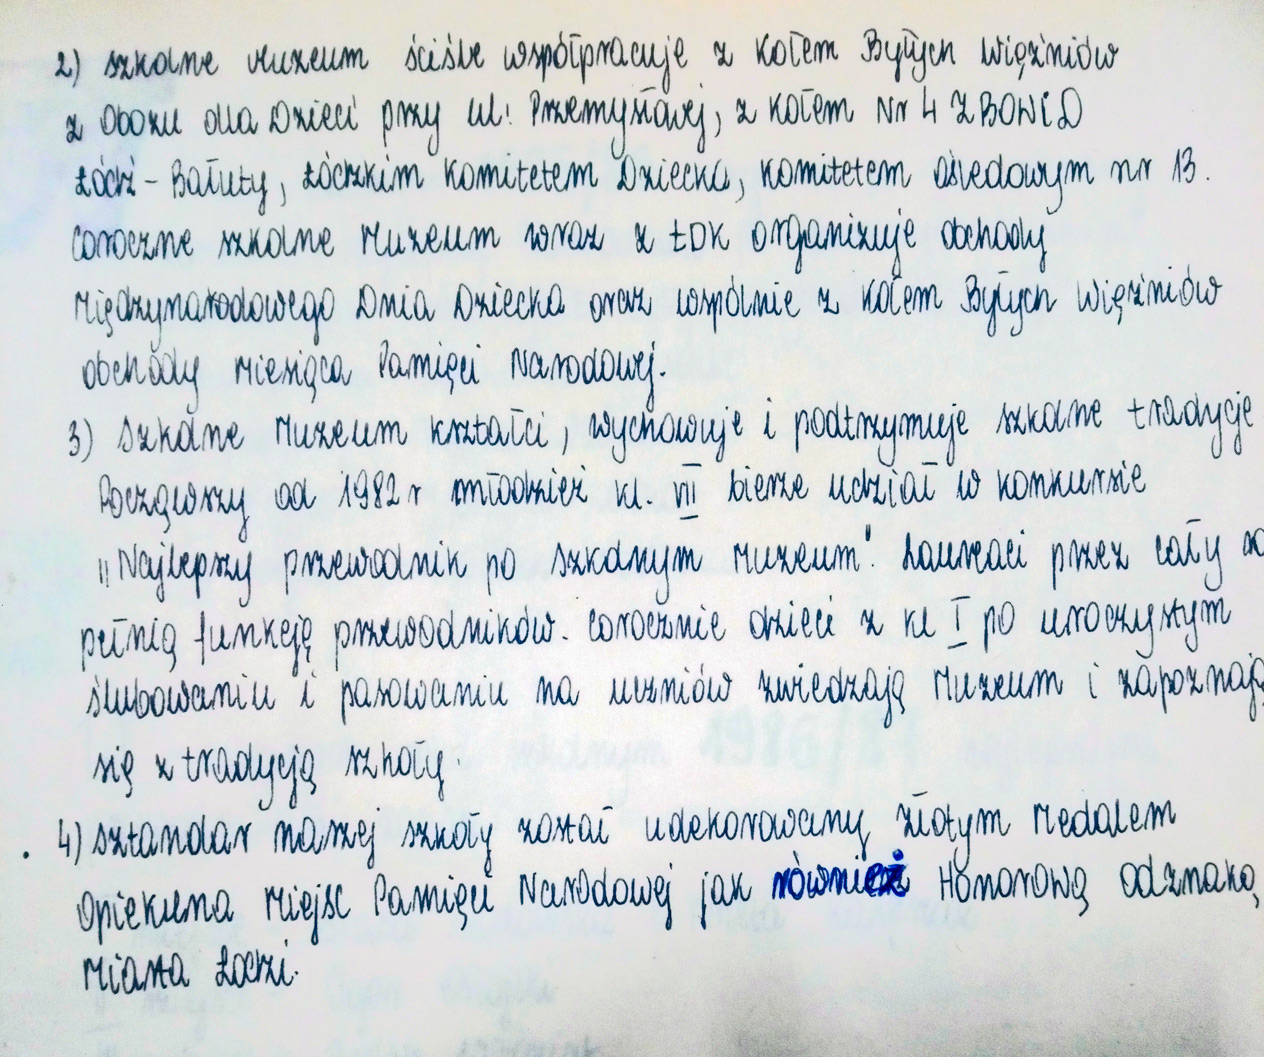 2) Szkolne Muzeum ściśle współpracuje z Kołem Byłych Więźniów
z Obozu dla Dzieci przy ul. Przemysłowej, z Kołem Nr 4 ZBOWiD
Łódź - Bałuty, Łódzkim Komitetem Dziecka, Komitetem Osiedlowym nr 13.
Coroczne szkolne Muzeum wraz z ŁDK organizuje obchody
Międzynarodowego Dnia Dziecka oraz wspólnie z Kołem Byłych Więźniów
obchody Miesiąca Pamięci Narodowej.
3) Szkolne Muzeum kształci, wychowuje i podtrzymuje szkolne tradycje
Począwszy od 1982 r młodzież kl. VII bierze udział w konkursie
"Najlepszy przewodnik po szkolnym Muzeum". Laureaci przez cały
pełnią funkcję przewodników. Corocznie dzieci z kl I po uroczystym
ślubowaniu i pasowaniu na uczniów zwiedzają Muzeum i zapoznają
się z tradycją szkoły.
4) Sztandar naszej szkoły został udekorowany złotym Medalem
Opiekuna Miejsc Pamięci Narodowej jak również Honorową Odznaką
Miasta Łodzi.